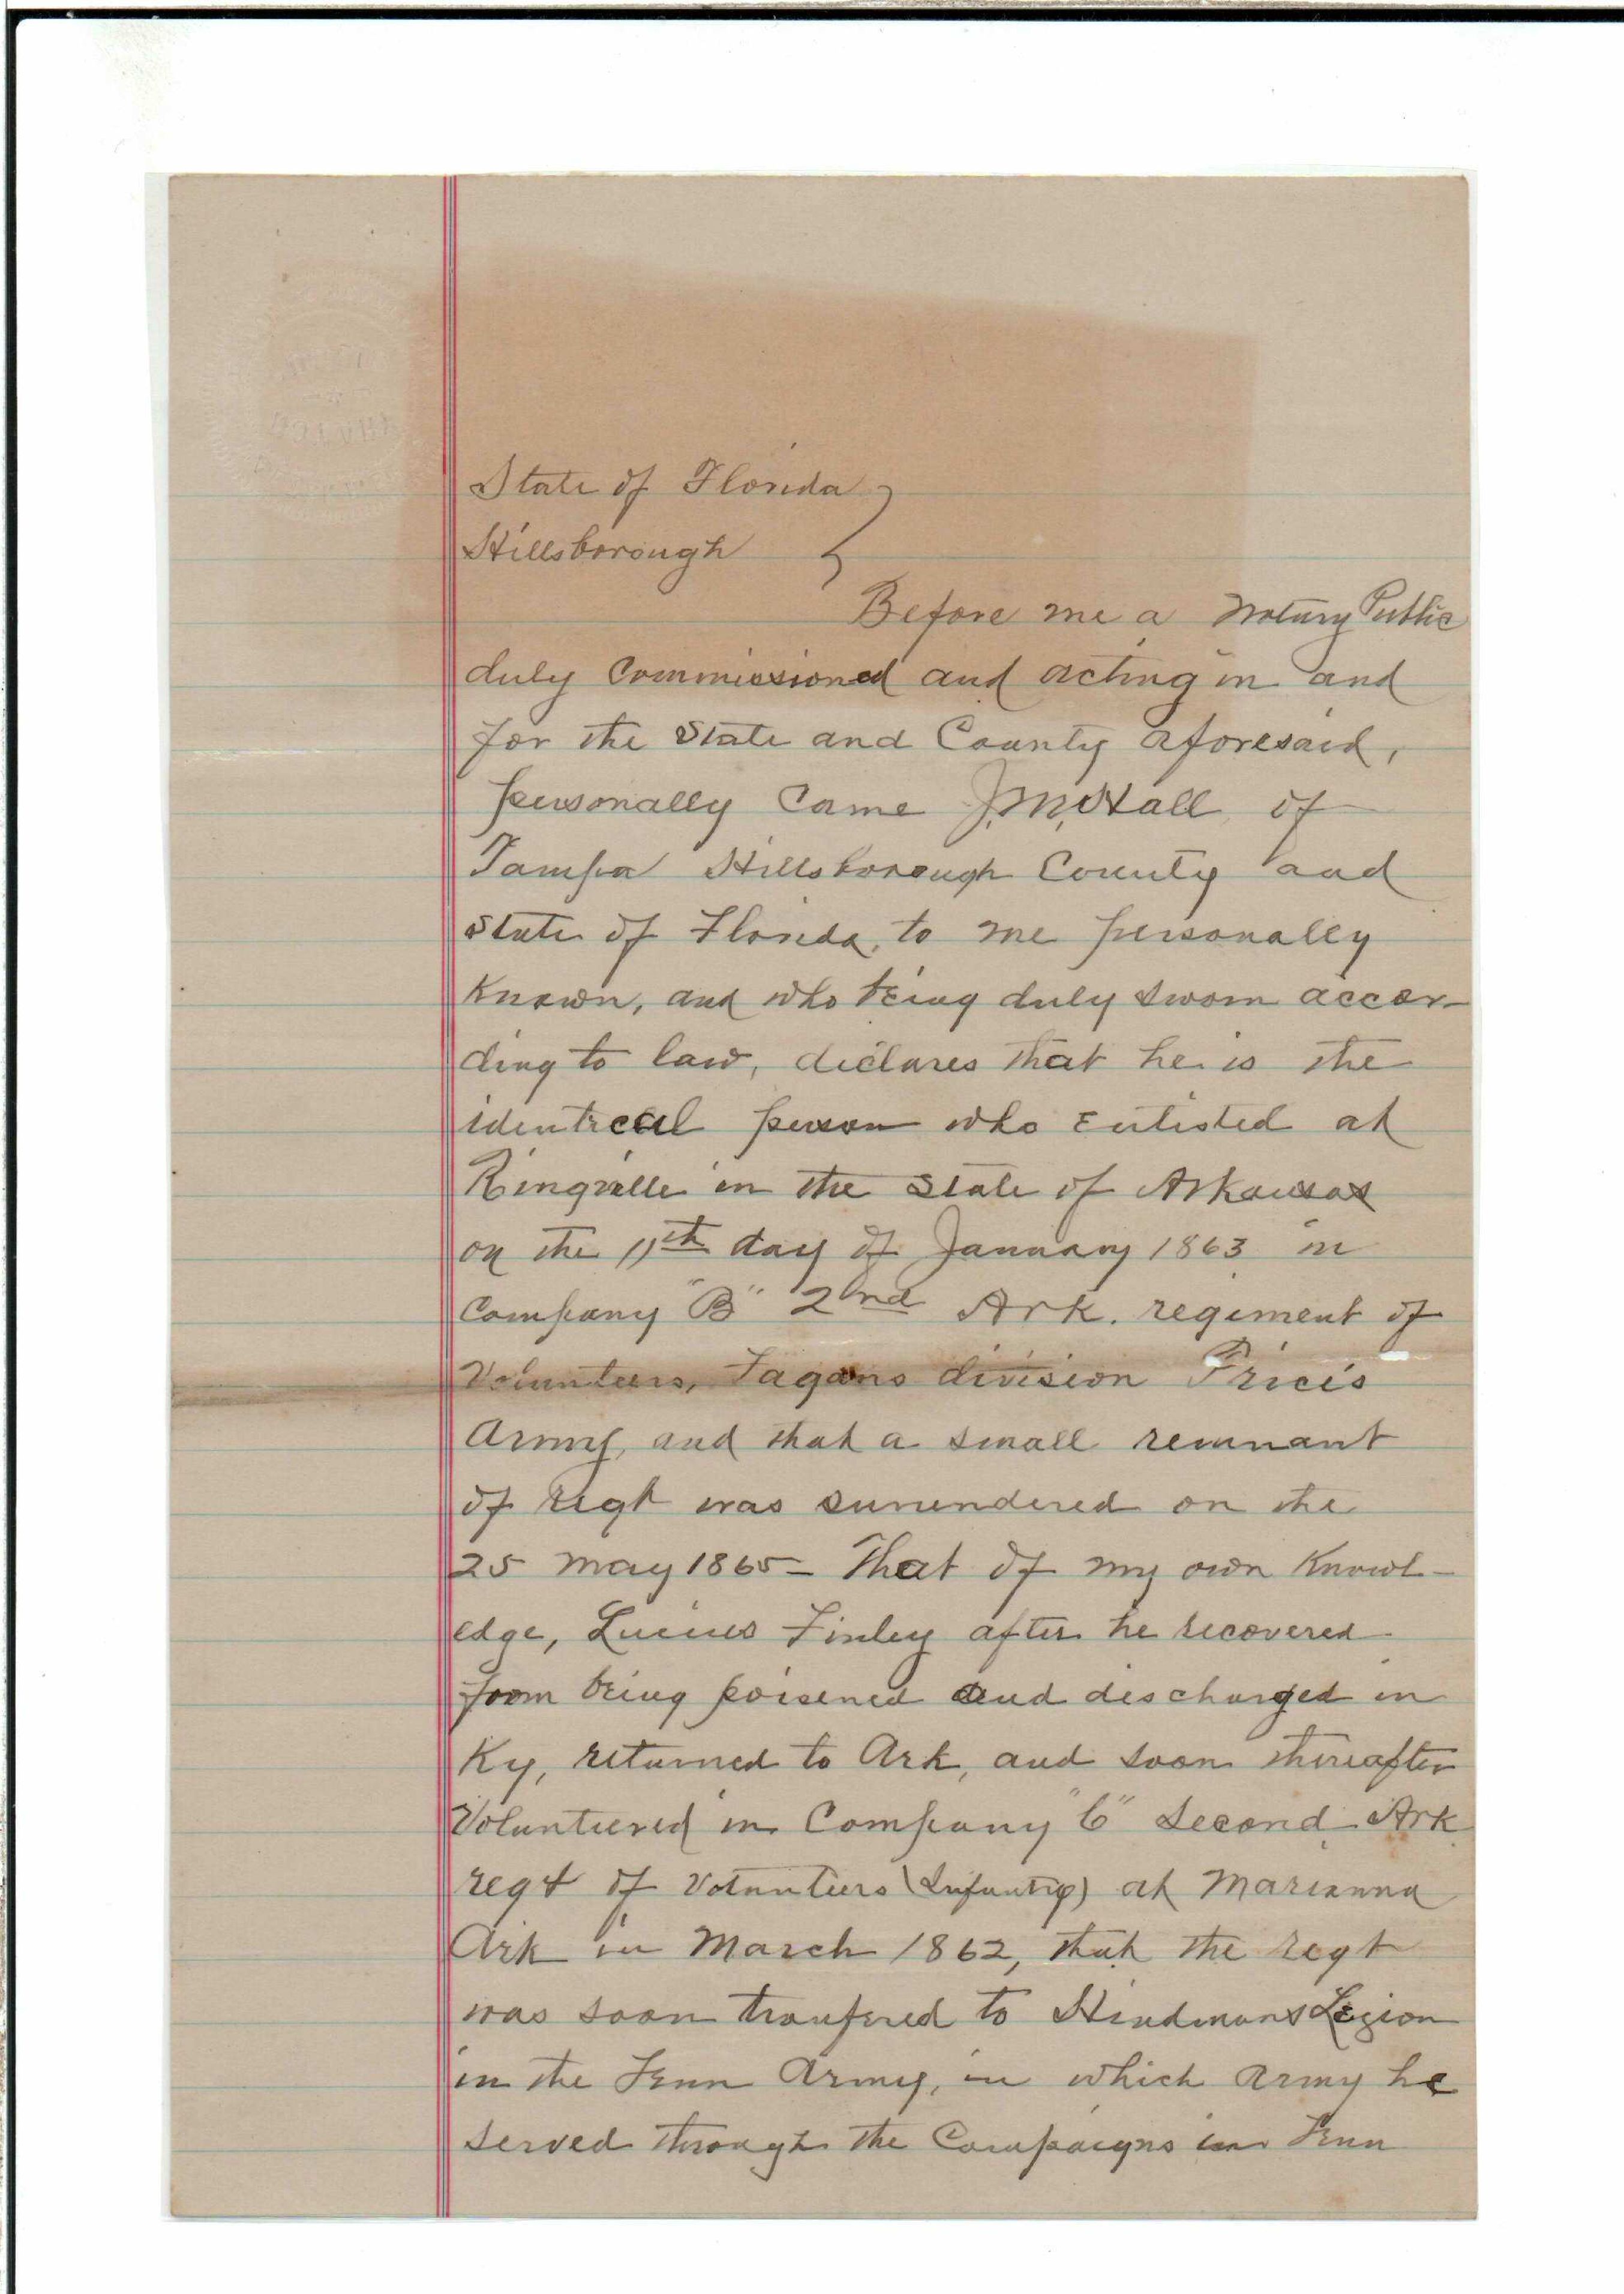 State of Florida
Hillsborough
Before me a Notary Public
duly Commissioned and acting in and
for the State and County aforesaid,
personally Came J.M. Hall of
Tampa Hillsborough County and
State of Florida, to me personally
Known, and who being duly sworn accor-
ding to law, declares that he is the
identical person who Enlisted at
Ringville in the State of Arkansas
on the 11th day of January 1863 in
Company "B" 2nd Ark. regiment of
Volunteers, Fagans division Price's
Army, and that a small remnant
of regt was surrendered on the
25 May 1865 - That of my own Knowl-
edge, Lucius Finley after he recovered
from being poisened and discharged in
Ky, returned to Ark, and soon thereafter
Volunteered in Company "C" Second Ark
regt of Volunteers (Infantry) at Marianna
Ark in March 1862, that the regt
was soon tranfered to Hindmans Legion
in the Tenn Army, in which Army he
served through the Campaigns in Tenn